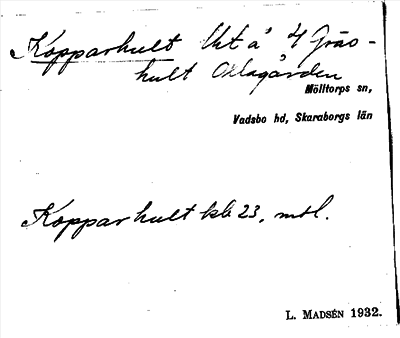 Kopparhult Ut å 4 Gräs-
hult Ollagården
Mölltorps sn,
Vadsbo hd, Skaraborgs län
Kopparhult kbl 23, mtl.
L. MADSÉN 1932.